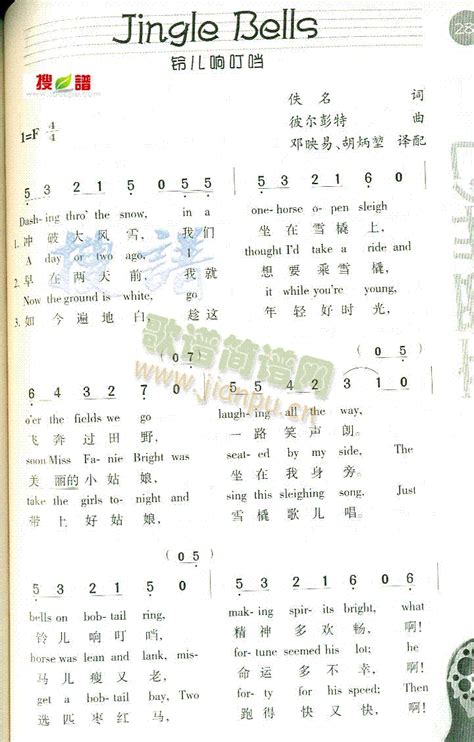 Jingle Bells
28
铃儿响叮当
搜谱
佚 名 词
1=F 4/4
彼尔彭特 曲
邓映易、胡炳堃 译配
5 3 2 1 5 0 5 5 5 3 2 1 6 0
Dash-ing thro' the snow, in a one-horse o-pen sleigh
1. 冲 破 大 风 雪, 我们 坐 在 雪 橇 上,
A day or two ago, I thought I'd take a ride and
2. 早 在 两 天 前, 我就 想 要 乘 雪 橇,
Now the ground is white, go it while you're young,
3. 如 今 遍 地 白, 趁这 年 轻 好 时 光,
歌谱简谱网
www.jianpu.cn
(0 7) (0 5)
6 4 3 2 7 0 5 5 4 2 3 1 0
o'er the fields we go laugh-ing all the way,
飞 奔 过 田 野, 一 路 笑 声 朗。
soon Miss Fa-nie Bright was seat-ed by my side, The
美 丽的 小 姑 娘, 坐 在 我 身 旁。
take the girls to-night and sing this sleighing song. Just
带 上 好 姑 娘, 雪 橇 歌 儿 唱。
(0 5)
5 3 2 1 5 0 5 3 2 1 6 0 6
bells on bob-tail ring, mak-ing spir-its bright, what
铃 儿 响 叮 当, 精 神 多 欢 畅, 啊!
horse was lean and lank, mis- for-tune seemed his lot; he
马 儿 瘦 又 老, 命 运 多 不 幸, 啊!
get a bob-tail bay, Two for-ty for his speed; Then
选 匹 枣 红 马, 跑 得 快 又 快, 啊!